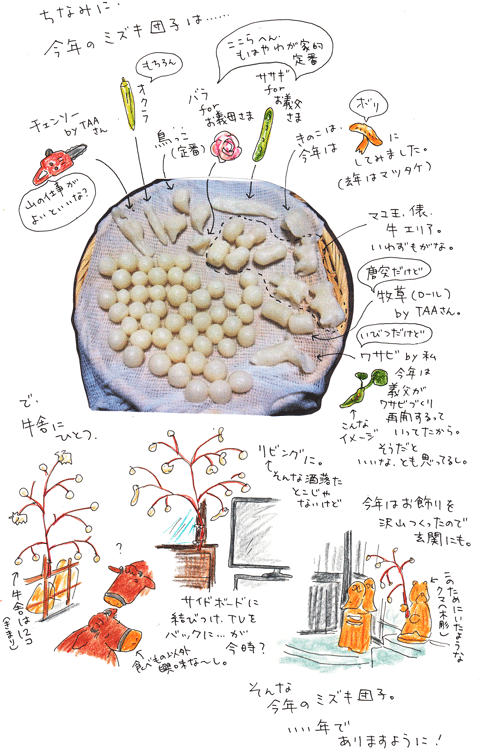 ちなみに・
今年のミズキ団子は……
ここらへん・
もはやわが家的
定番
もちろん
オクラ
バラ
for
お義母さま
ササギ
for
お義父
さま
きのこは・
今年は
ボリ
に
してみました。
(去年はマツタケ)
鳥っこ
(定番)
チェンソー
by TAA
さん
山の仕事が
よいといいな?
マユ玉、俵、
牛エリア。
いわずもがな。
唐突だけど
牧草(ロール)
by TAAさん。
いびつだけど
ワサビ by 私
今年は
義父が
ワサビづくり
再開するって
いってたから。
そうだと
いいな、とも思ってるし。
こんな
イメージ
で・
牛舎に
ひとつ。
↑牛舎は12コ
(きまり)
?
↑食べもの以外
興味な〜し。
リビングに。
↑そんな洒落た
とこじゃ
ないけど
サイドボードに
結びつけ、TVを
バックに…が
今時?
今年はお飾りを
沢山つくったので
玄関にも。
このためにいたような
クマ(木彫)
そんな
今年のミズキ団子。
いい年で
ありますように!